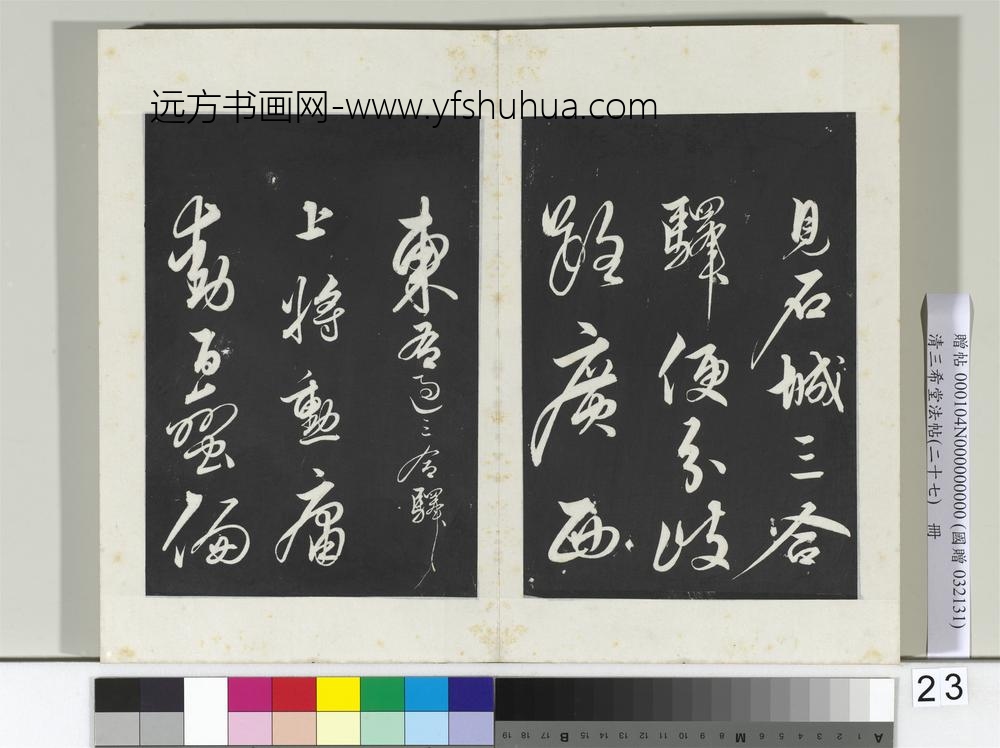 远方书画网-www.yfshuhua.com
見石城三合
驛便分岐
路廣西
東右過三合驛
上將勳庸
動百蠻偏
贈帖 000104N000000000 (國贈 032131)
清三希堂法帖(二十七) 冊
23